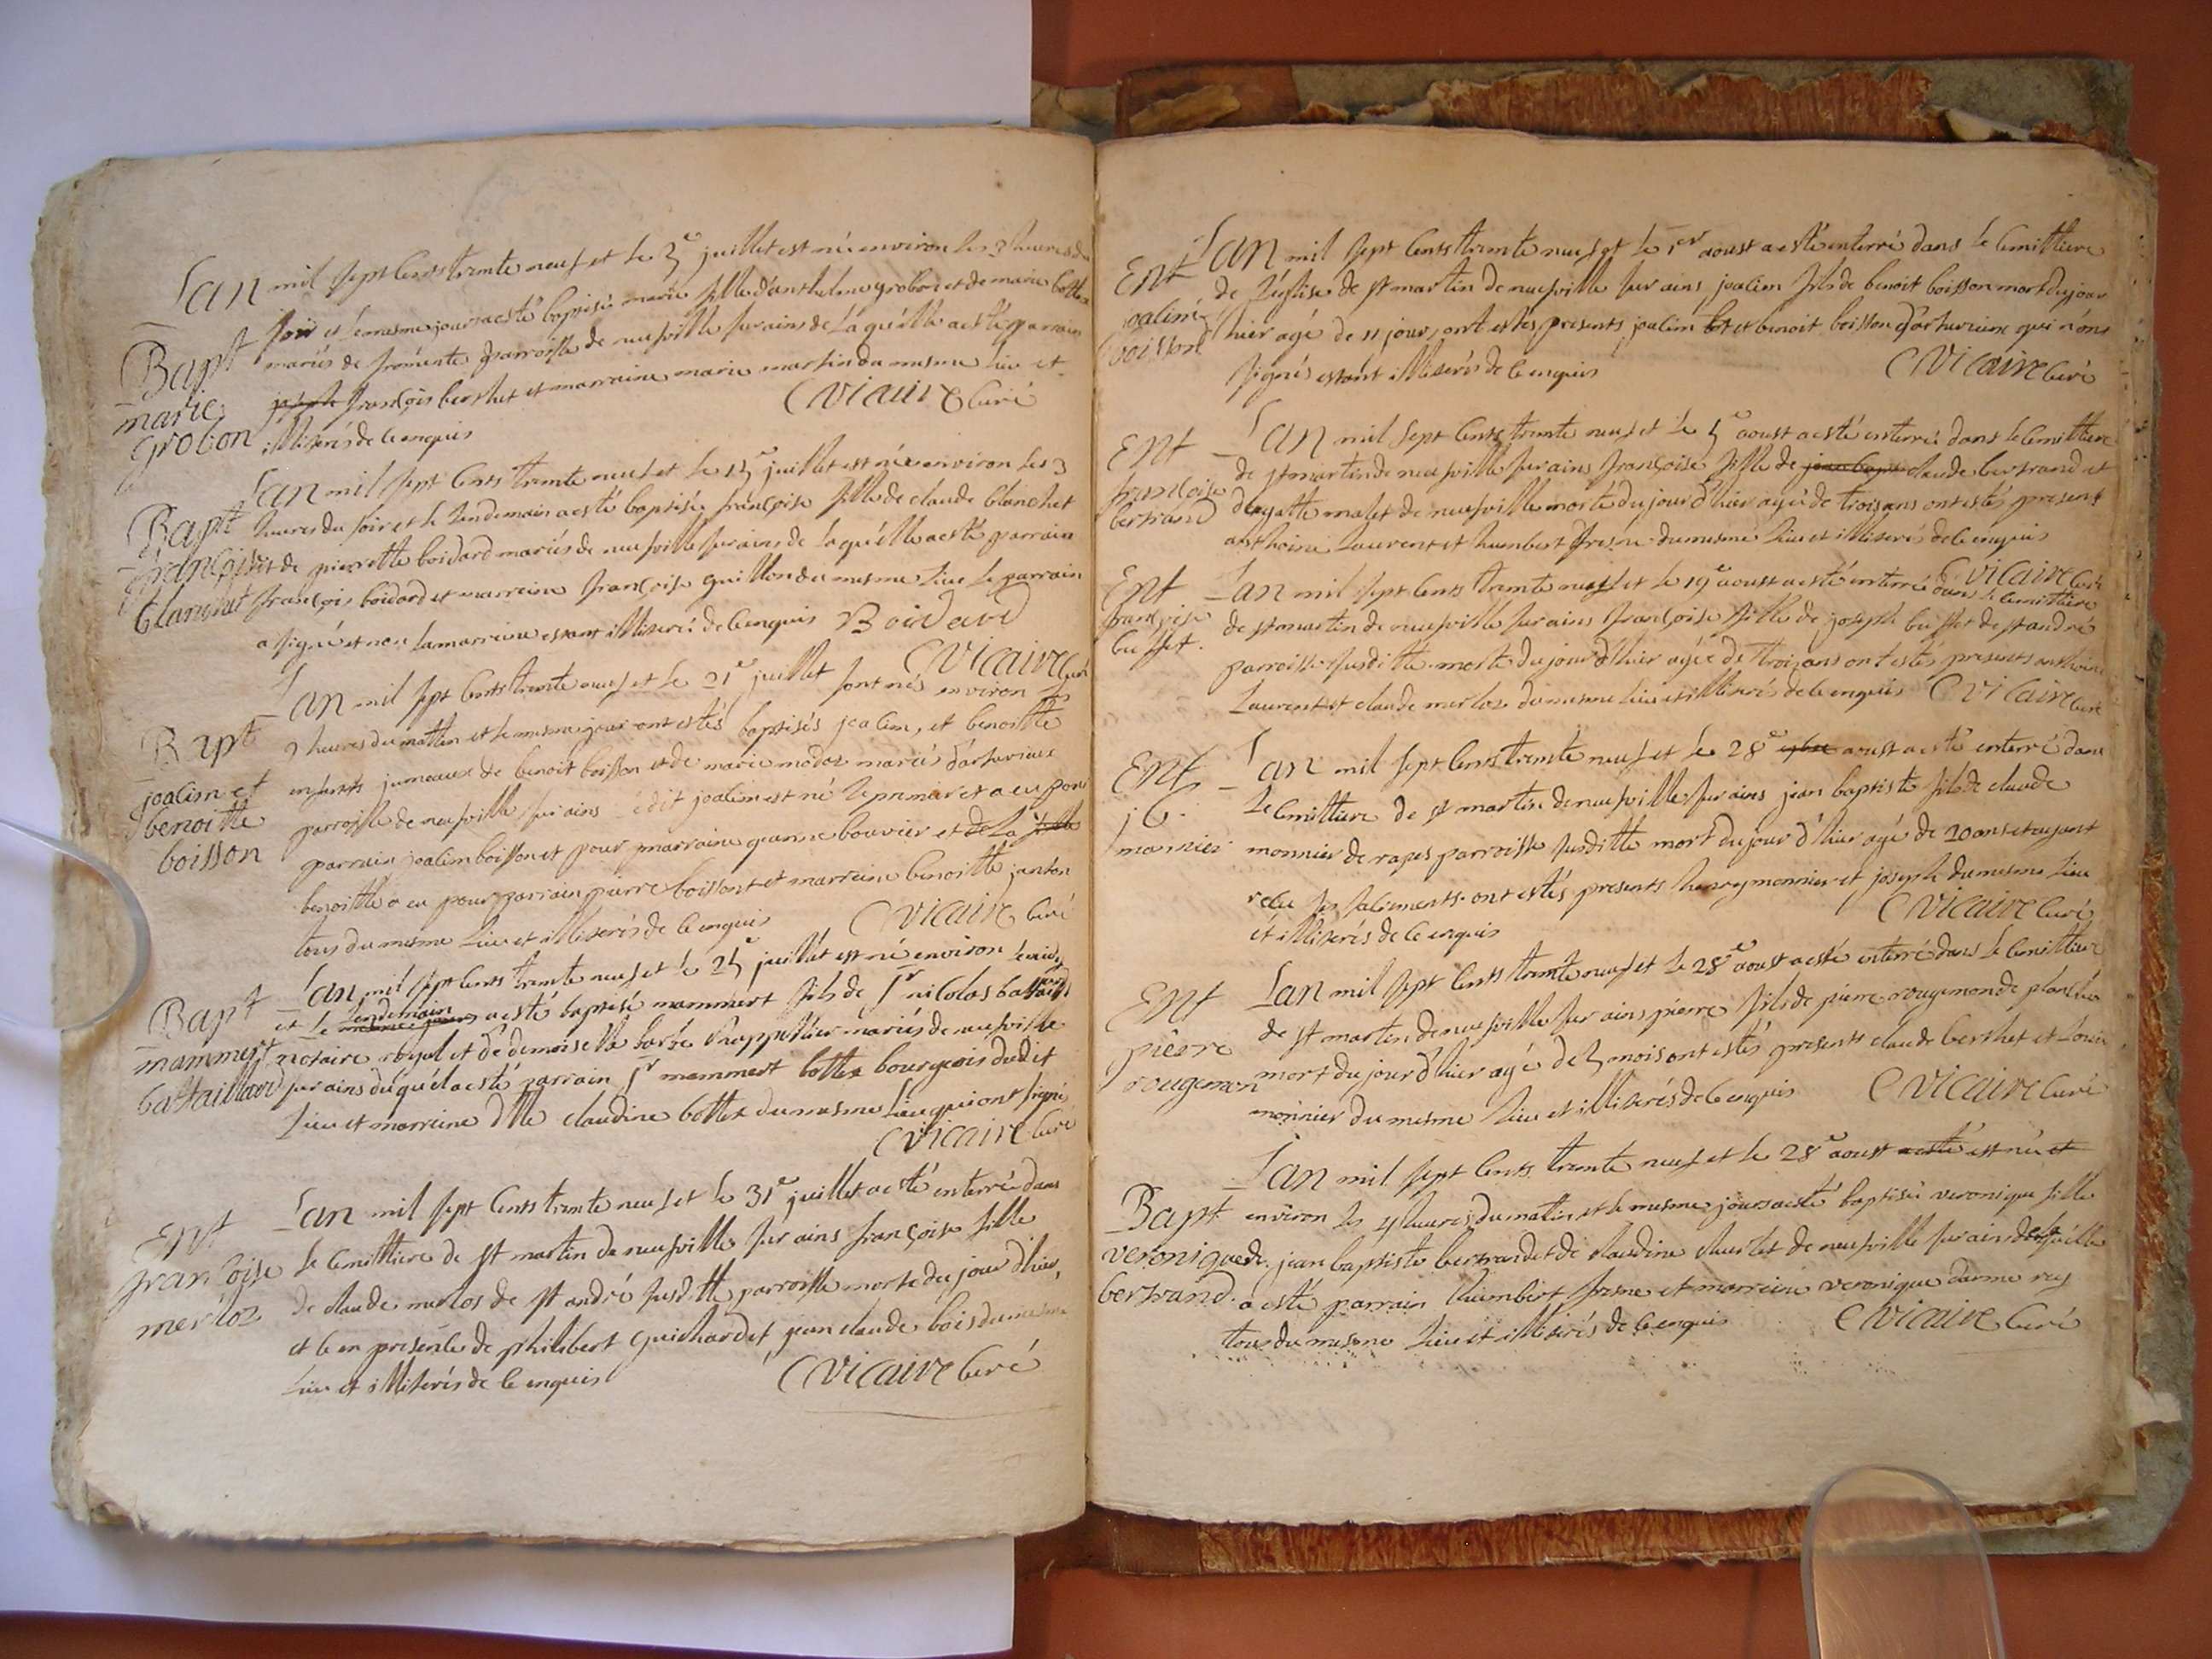 Bapt
marie
grobon
Lan mil sept cents trente neuf et le 3e juillet est née environ les 3 heures du
soir et le mesme jour a esté baptisée marie fille d'anthelme grobon et de marie bottex
mariés de fromente parroisse de neufville sur ains de laquelle a esté parrain
joseph françois berthet et marraine marie martin du mesme lieu et
illiterés de ce enquis CVicaire Curé
Bapt
françoise
blanchet
Lan mil sept cents trente neuf et le 15e juillet est née environ les 3
heures du soir et le lendemain a esté baptisée françoise fille de claude blanchet
et de pierrette boidard mariés de neufville sur ains de laquelle a esté parrain
françois boidard et marreine françoise guillon du mesme lieu le parrain
a signé et non la marreine estant illiteré de ce enquis Boidard
CVicaire Curé
Bapt
joalim et
benoitte
boisson
Lan mil sept cents trente neuf et le 21e juillet sont nés environ les
2 heures du mattin et le mesme jour ont estés baptisés joalim, et benoitte
enfants jumeaux de benoit boisson et de marie modas mariés d'arturieux
parroisse de neufville sur ains ledit joalim est né le premier et a eu pour
parrain joalim boisson et pour marraine jeanne bouvier et de la fille
benoitte a eu pour parrain pierre boisson et marreine benoitte janton
tous du mesme lieu et illiterés de ce enquis CVicaire Curé
Bapt
mammert
battaillard
Lan mil sept cents trente neuf et le 25e juillet est né environ le midy
et le mesme jour lendemain a esté baptisé mammert fils de Sr nicolas battaillard
notaire royal et de demoiselle barbe suppellier mariés de neufville
sur ains duquel a esté parrain Sr mammert bottex bourgeois dudit
lieu et marreine dlle claudine bottex du mesme lieu qui ont signé
CVicaire Curé
Ent
françoise
merloz
Lan mil sept cents trente neuf et le 31e juillet a esté enterrée dans
le cemittiere de st martin de neufville sur ains françoise fille
de claude merlos de st andré susditte parroisse morte du jour d'hier,
et ce en presence de philibert guichard et jean claude bois du mesme
lieu et illiterés de ce enquis CVicaire Curé
Ent
joalim
boisson
Lan mil sept cents trente neuf et le 1er aoust a esté enterré dans le cemittiere
de l'église de st martin de neufville sur ains joalim fils de benoit boisson mort du jour
d'hier agé de 11 jour, ont estés presents joalim et benoit boisson d'arturieux qui n'ons
signés estant illiterés de ce enquis CVicaire Curé
Ent
françoise
bertrand
Lan mil sept cents trente neuf et le 5e aoust a esté enterrée dans le cemittiere
de st martin de neufville sur ains françoise fille de jean bapt claude bertrand et
d'agatte malet de neufville morte du jour d'hier agée de trois ans ont estés present
anthoine Laurent et humbert fresne du mesme lieu et illiterés de ce enquis
CVicaire Curé
Ent
françoise
buffet.
Lan mil sept cents trente neuf et le 19e aoust a esté enterrée dans le cemittiere
de st martin de neufville sur ains françoise fille de joseph buffet de st andré
parroisse susditte morte du jour d'hier agée de trois ans ont estés presents anthoine
Laurent et claude merloz du mesme lieu et illiterés de ce enquis CVicaire Curé
Ent
j b.
monnier
Lan mil sept cents trente neuf et le 28e aoust a esté enterré dans
le cemittiere de st martin de neufville sur ains jean baptiste fils de claude
monnier de rapes parroisse susditte mort du jour d'hier agé de 20 ans et ayant
recu ses sacrements. ont estés presents henry monnier et joseph du mesme lieu
et illiterés de ce enquis CVicaire Curé
Ent
pierre
rougemon
Lan mil sept cents trente neuf et le 28e aoust a esté enterré dans le cemittiere
de st martin de neufville sur ains pierre fils de pierre rougemon de planche
mort du jour d'hier agé de 5 mois ont estés presents claude berthet et Louis
monnier du mesme lieu et illiterés de ce enquis CVicaire Curé
Bapt
veronique
bertrand.
Lan mil sept cents trente neuf et le 28e aoust a esté est née et
environ les 4 heures du matin et le mesme jour a esté baptisée veronique fille
de jean baptiste bertrand et de claudine charlet de neufville sur ains de laquelle
a esté parrain humbert fresne et marreine veronique darme rey
tous du mesme lieu et illiterés de ce enquis CVicaire Curé